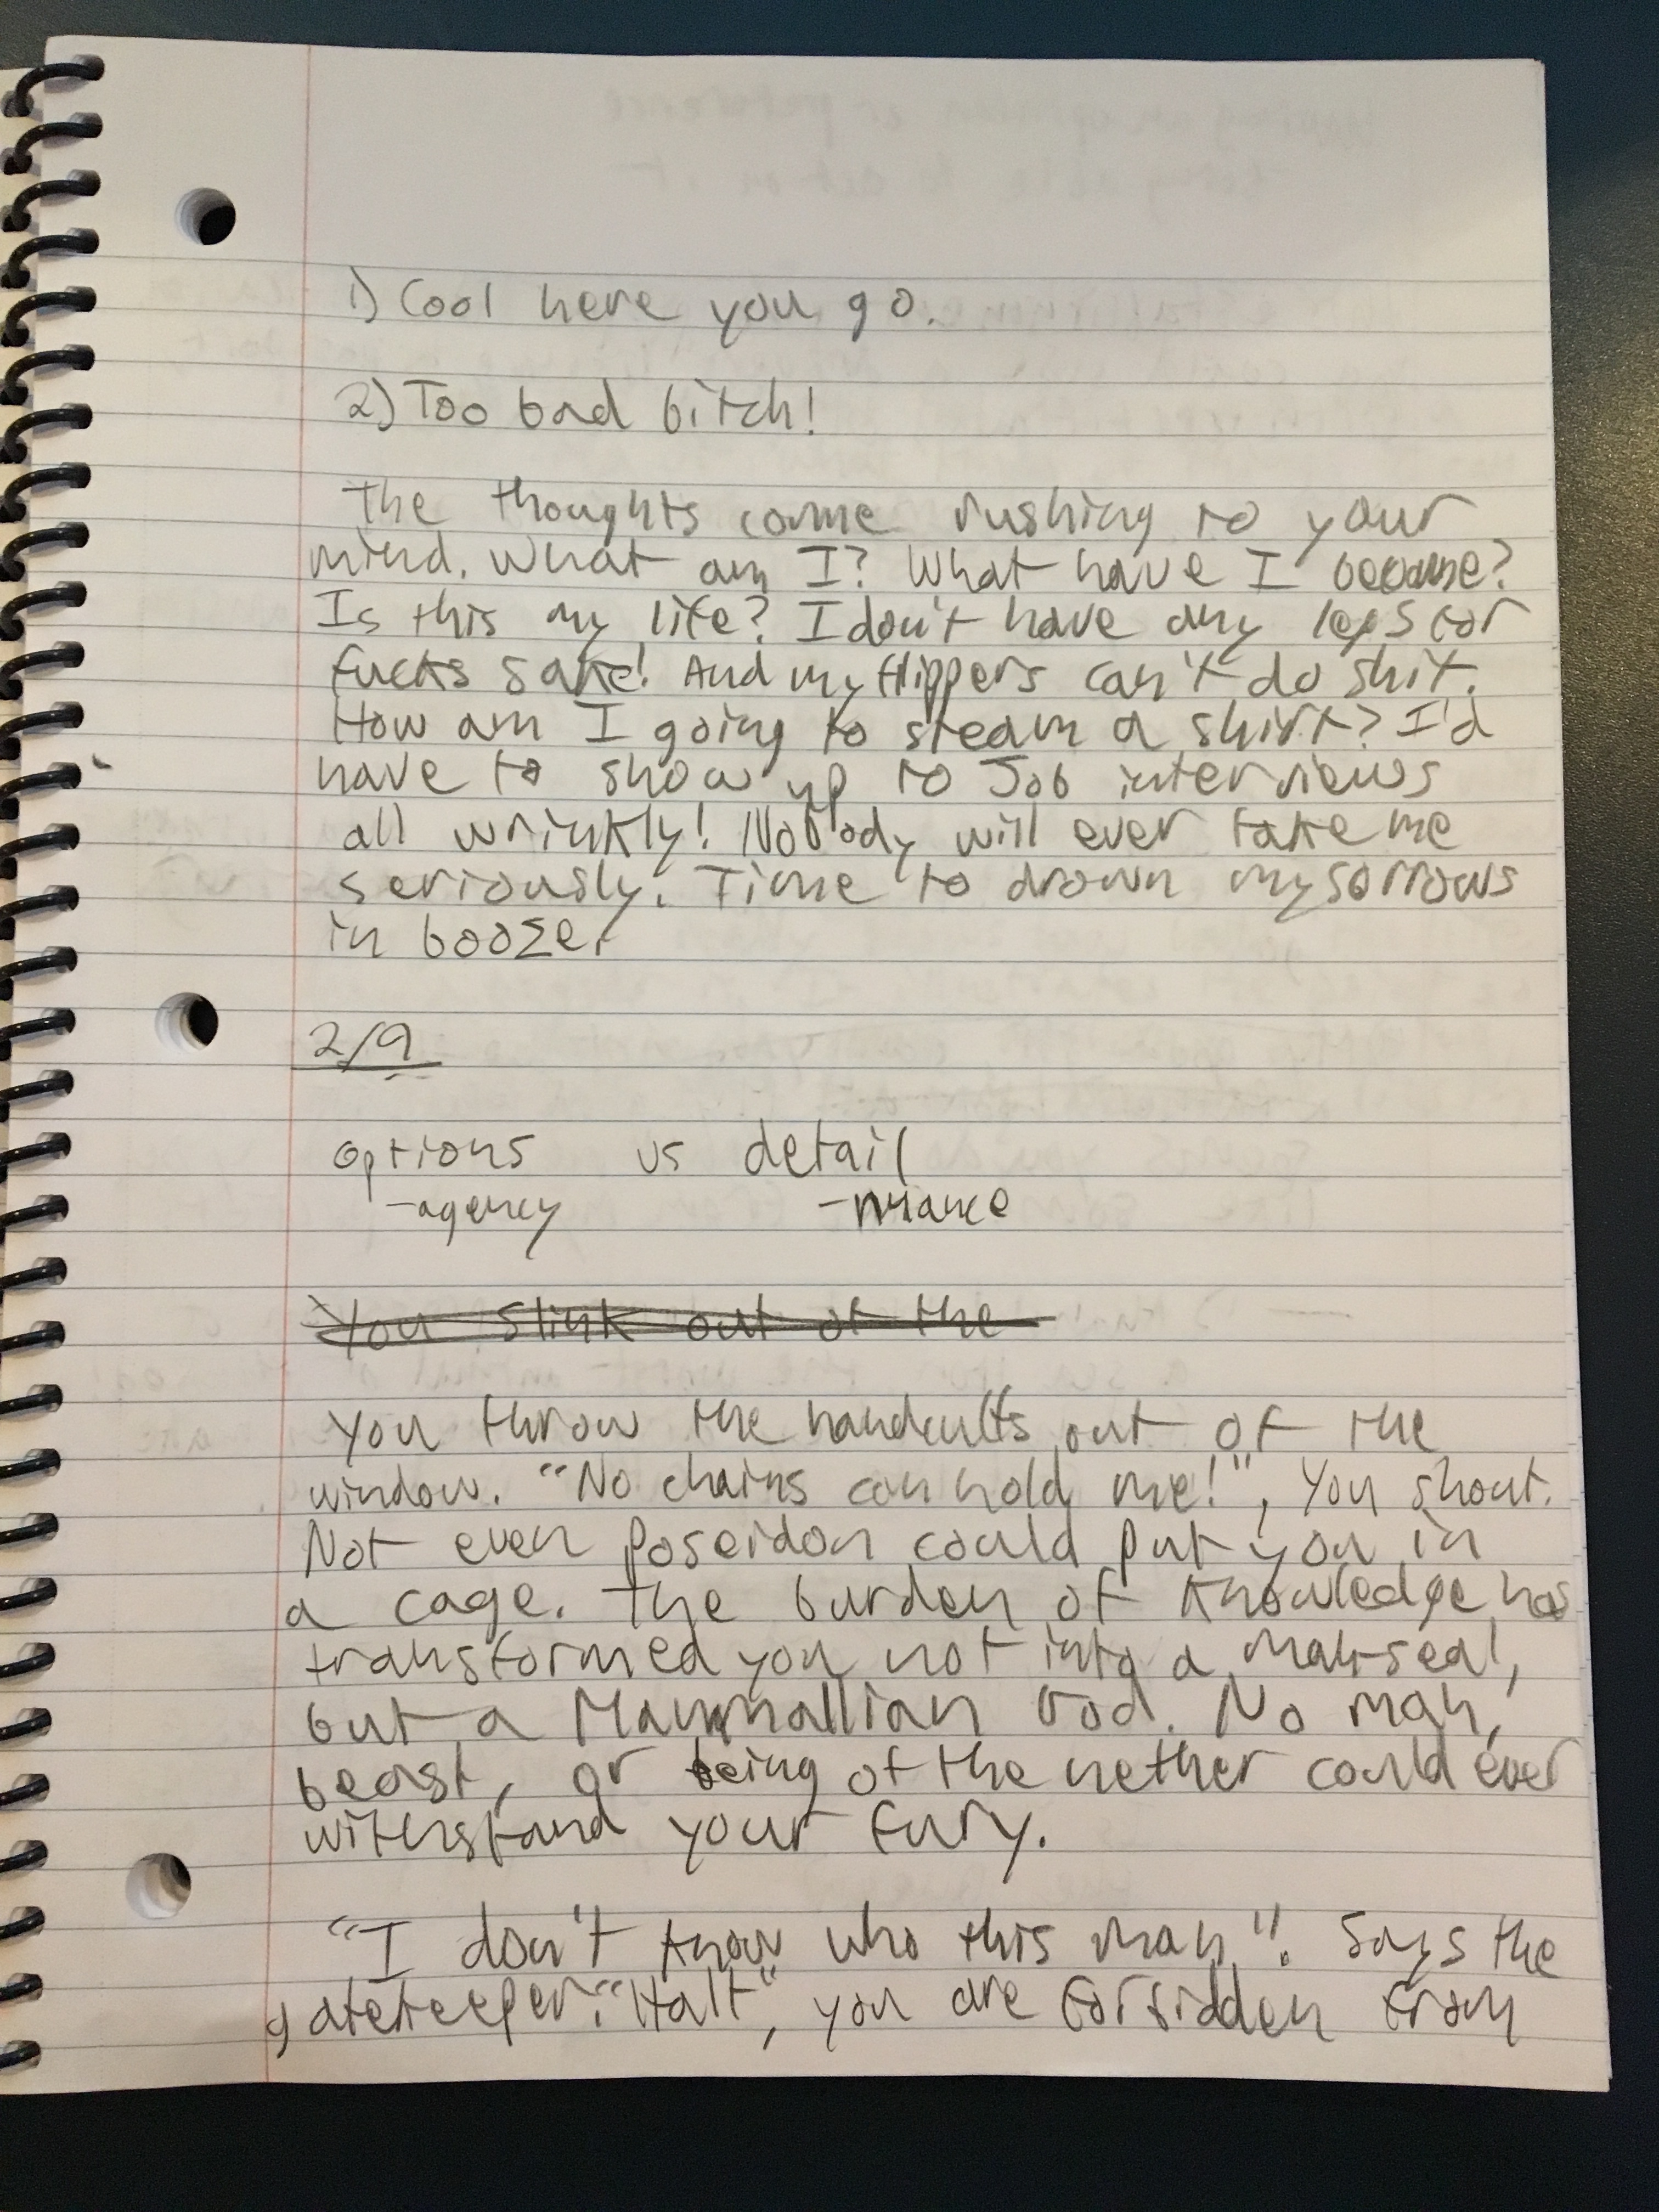 1) Cool here you go.
2) Too bad bitch!
The thoughts come rushing to your
mind. What am I? What have I become?
Is this my life? I don't have any legs for
fucks sake! And my flippers can't do shit.
How am I going to steam a shirt? I'd
have to show up to Job interviews
all wrinkly! Nobody will ever take me
seriously. Time to drown my sorrows
in booze.
2/9
options vs detail
-agency -nuance
You slink out of the
You throw the handcuffs out of the
window. "No chains can hold me!", You shout.
Not even Poseidon could put you in
a cage. The burden of knowledge has
transformed you not into a man-seal,
but a Mammallian God. No man,
beast, or being of the nether could ever
withstand your fury.
"I don't know who this man". Says the
gatekeeper. "Halt", you are forbidden from